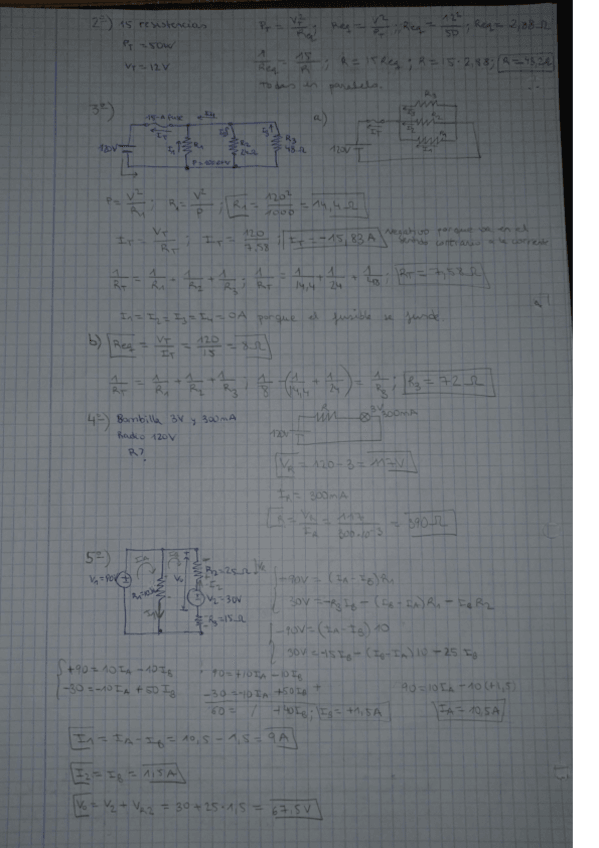 2º) 15 resistencias
P_T = 50W
V_T = 12V
P_T = V_T²/R_eq ; R_eq = V²/P_T ; R_eq = 12²/50 ; R_eq = 2,88 Ω
1/R_eq = 15/R ; R = 15 R_eq ; R = 15 · 2,88 ; R = 43,2 Ω
todas en paralelo.
3º)
a)
120V
R1
R2
24Ω
R3
48Ω
I_T
120V
I_T
P = V²/R1 ; R1 = V²/P ; R1 = 120²/1000 = 14,4 Ω
I_T = V_T/R_T ; I_T = 120/7,58 ; I_T = -15,83 A negativo porque va en el
sentido contrario a la corriente
1/R_T = 1/R1 + 1/R2 + 1/R3 ; 1/R_T = 1/14,4 + 1/24 + 1/48 ; R_T = 7,58 Ω
I1 = I2 = I3 = I4 = 0A porque el fusible se funde.
b) R_eq = V_T/I_T = 120/15 = 8 Ω
1/R_T = 1/R1 + 1/R2 + 1/R3 ; 1/8 - (1/14,4 + 1/24) = 1/R3 ; R3 = 72 Ω
4º) Bombilla 3V y 300mA
Radio 120V
R?
R
3V
300mA
120V
V_R = 120 - 3 = 117V
I_R = 300mA
R = V_R/I_R = 117/300·10⁻³ = 390 Ω
5º)
I_A
I_B
R2=25Ω
V2=30V
R3=15Ω
-90V = (I_A - I_B) R1
30V = -R3 I_B - (I_B - I_A) R1 - I_B R2
-90V = (I_A - I_B) 10
30V = -15 I_B - (I_B - I_A) 10 - 25 I_B
+90 = 10 I_A - 10 I_B
-30 = -10 I_A + 50 I_B
90 = +10 I_A - 10 I_B
-30 = -10 I_A + 50 I_B +
60 = / +40 I_B ; I_B = +1,5A
90 = 10 I_A - 10 (+1,5)
I_A = 10,5A
I1 = I_A - I_B = 10,5 - 1,5 = 9A
I2 = I_B = 1,5A
V0 = V2 + V_R2 = 30 + 25 · 1,5 = 67,5V